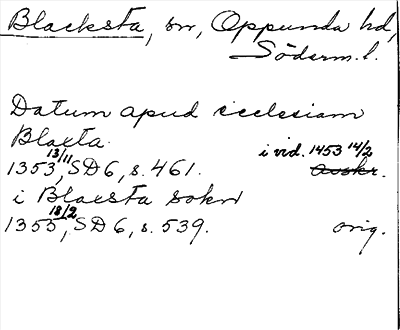 Blacksta, sn, Oppunda hd,
Söderm.l.
Datum apud ecclesiam
Blacta
1353 13/11, SD 6, s. 461. i vid. 1453 14/2 avskr.
i Blacsta sokn
1355 18/2, SD 6, s. 539. orig.